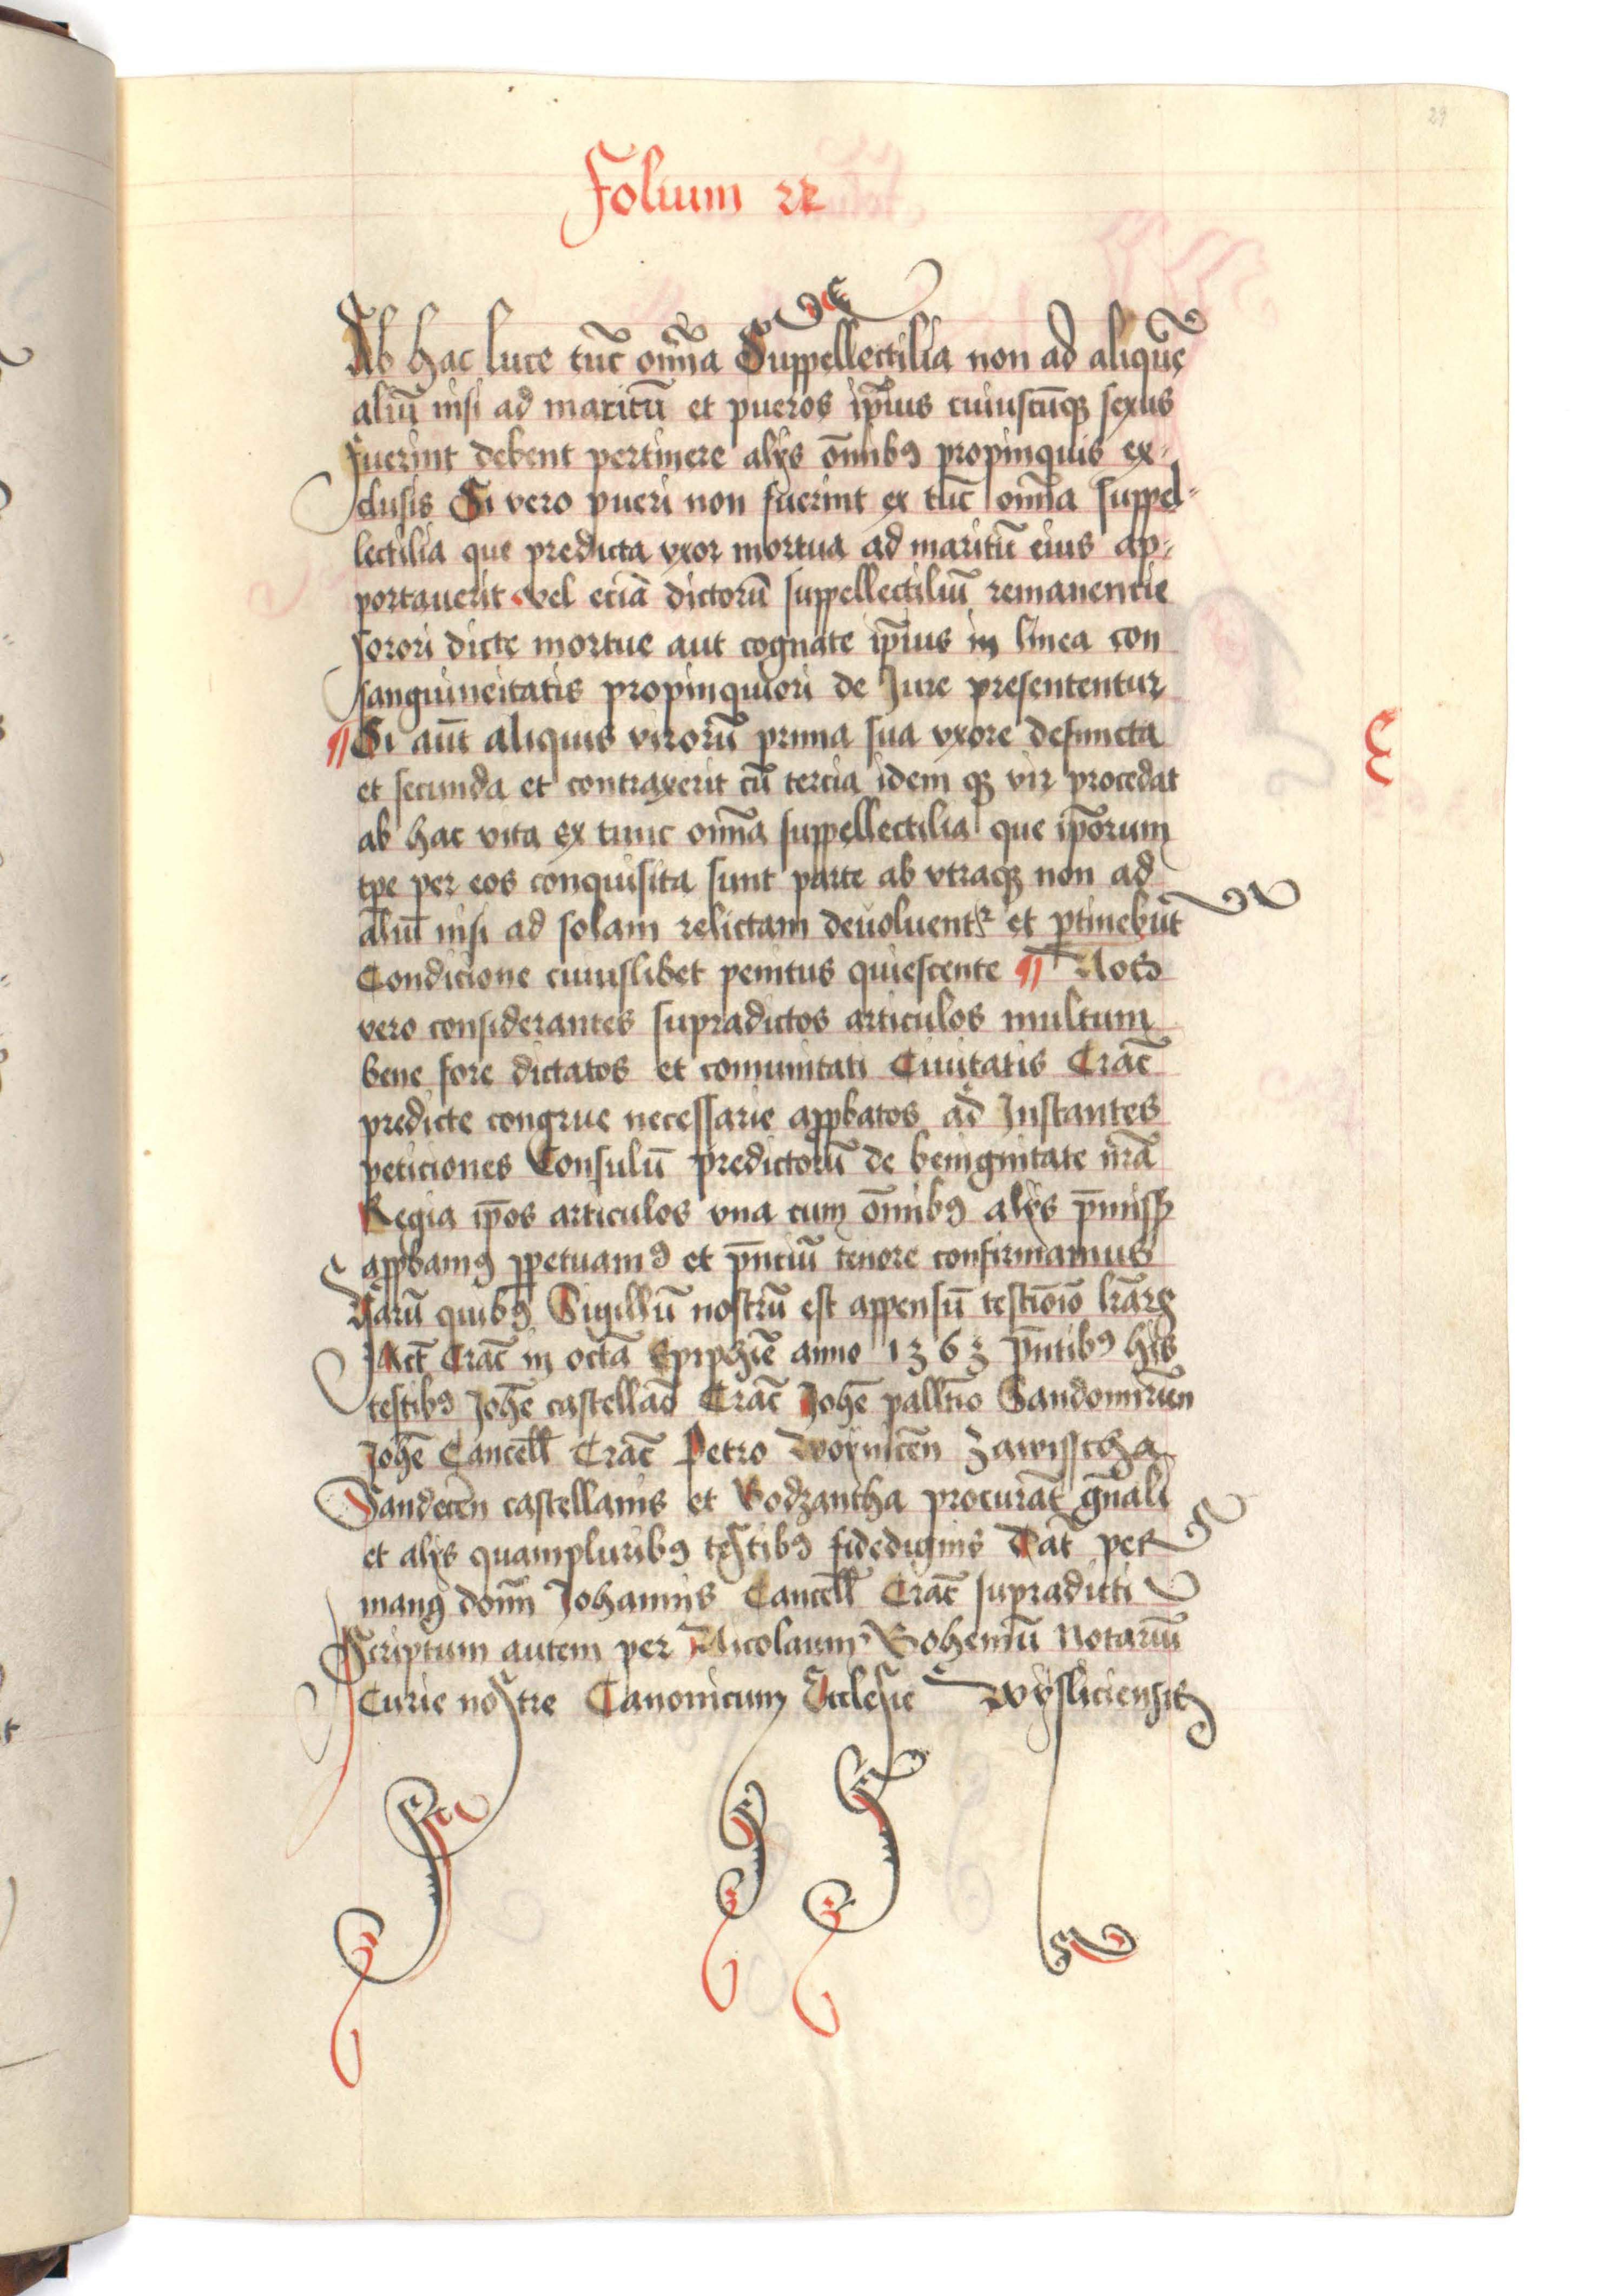 29
Folium 22
Ab hac luce tūc om̄ia Suppellectilia non ad aliquē
aliū nisi ad maritū et pueros ip̄ius cuiuscūqꝫ sexus
fuerint debent pertinere alijs om̄ibꝰ propinquis ex-
clusis Si vero pueri non fuerint ex tūc om̄ia suppel-
lectilia que predicta vxor mortua ad maritū eius ap-
portauerit vel eciā dictorū suppellectiliū remanencie
sorori dicte mortue aut cognate ip̄ius in linea con
sanguineitatis propinquiori de Jure presententur
¶ Si aūt aliquis virorū prima sua vxore defuncta
et secunda et contraxerit cū tercia idem qꝫ vir procedat
ab hac vita ex tunc om̄ia suppellectilia que ip̄orum
tp̄e per eos conquisita sunt parte ab vtraqꝫ non ad
aliū nisi ad solam relictam deuoluentr et ꝑtinebūt
Condicione cuiuslibet penitus quiescente ¶ Nos
vero considerantes supradictos articulos multum
bene fore dictatos et comunitati Ciuitatis Crac̄
predicte congrue necessarie app̱batos ad Instantes
peticiones Consulū predictorū de benignitate nr̄a
Regia ip̄os articulos vna cum om̄ibꝰ alijs p̄missꝫ
app̱bamꝰ ꝑpetuamꝰ et p̄nciū tenore confirmamus
Harū quibꝰ Sigillū nostrū est appensū testiōio lr̄arꝫ
Act̄ Crac̄ in octā Epiphīe anno 1363 p̄ntibꝰ his
testibꝰ Joh̄e castellan̄ Crac̄ Joh̄e pallt̄io Sandomirien̄
Joh̄e Cancell̄ Crac̄ Petro Woynicen̄ Zawisscha
Sandecen̄ castellanis et Bodzantha procurat̄ gn̄ali
et alijs quampluribꝰ testibꝰ fidedignis Dat̄ per
manꝰ domī Johannis Cancell̄ Crac̄ supradicti
Scriptum autem per Nicolaum Bohemū Notariū
Curie nostre Canonicum Ecclesie Wysliciensis